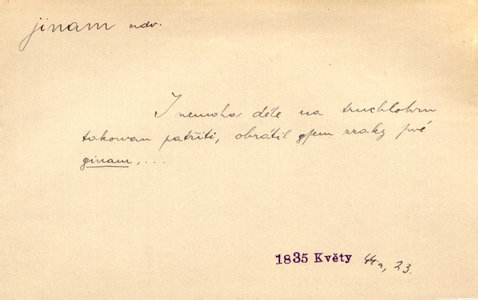 jinam adv.
I nemoha déle na truchlohru
takowau patřiti, obrátil gsem zraky své
ginam,...
1835 Květy 44a, 23.